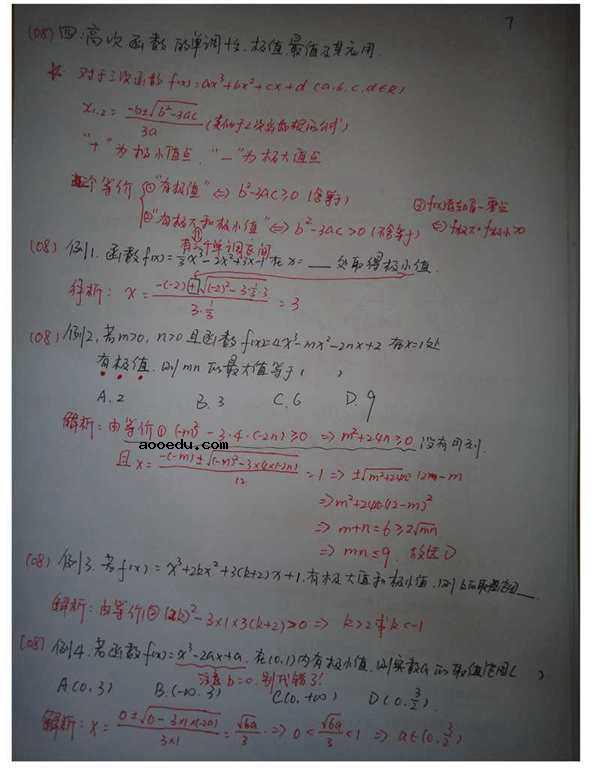 7
(08) 四.高次函数的单调性.极值.最值及其应用
☆ 对于三次函数 f(x)=ax³+bx²+cx+d (a.b.c.d∈R)
x₁,₂ = (-b±√(b²-3ac))/3a (类似于2次方程求根公式)
"+"为极小值点."-"为极大值点
个等价 ①"有极值" ⇔ b²-3ac≥0 (含等于)
②"有极大和极小值" ⇔ b²-3ac>0 (不含等于)
有三个单调区间
⇔ f极大·f极小>0
(08) 例1. 函数f(x)=⅓x³-2x²+3x-1 在 x=___处取得极小值.
解析: x = (-(-2)+√((-2)²-3·⅓·3))/(3·⅓) = 3
(08) 例2. 若m>0, n>0且函数f(x)=4x³-mx²-2nx+2 在x=1处
有极值.则mn的最大值等于( )
A.2 B.3 C.6 D.9
解析:由等价① (-m)²-3·4·(-2n)≥0 ⇒ m²+24n≥0 没有用到.
aooedu.com
且 x = (-(-m)±√((-m)²-3×4×(-2n)))/12 = 1 ⇒ ±√(m²+24n)=12-m
⇒m²+24n=(12-m)²
⇒ m+n=6≥2√mn
⇒ mn≤9. 故选D
(08) 例3. 若f(x)=x³+2kx²+3(k+2)x+1.有极大值和极小值.则k的取值范围___.
解析:由等价② (2k)²-3×1×3(k+2)>0 ⇒ k>2或k<-1
(08) 例4.若函数f(x)=x³-2ax+a.在(0,1)内有极小值.则实数a的取值范围( )
注意b=0.别代错了!
A(0,3) B.(-∞.3) C(0,+∞) D(0,3/2)
解析: x = (0±√(0-3×1×(-2a)))/(3×1) = √6a/3 ⇒ 0<√6a/3<1 ⇒ a∈(0,3/2)